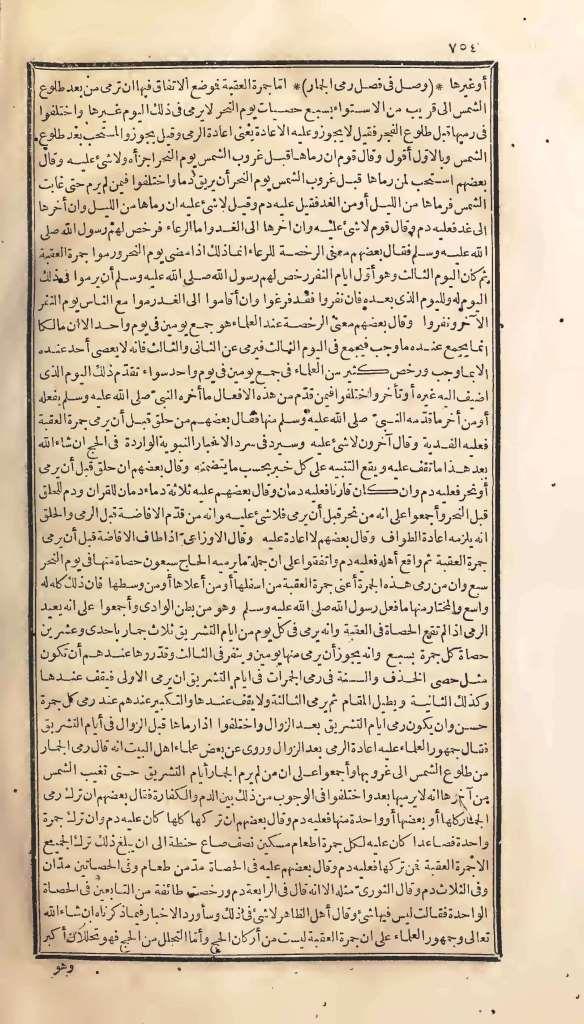 ٧٥٤
أو غيرها * (وصل في فصل رمى الجمار) * اما جمرة العقبة فوضع الاتفاق فيها ان ترمى من بعد طلوع
الشمس الى قريب من الاستواء بسبع حصيات يوم النحر لا يرمى فى ذلك اليوم غيرها واختلفوا
فى رميها قبل طلوع الفجر فقيل لا يجوز وعليه الاعادة يعنى اعادة الرمى وقيل يجوز والمستحب بعد طلوع
الشمس وبالاول أقول وقال قوم ان رماها قبل غروب الشمس يوم النحر اجزأه ولا شئ عليه وقال
بعضهم استحب لمن رماها قبل غروب الشمس يوم النحر أن يريق دما واختلفوا فيمن لم يرم حتى غابت
الشمس فرماها من الليل أو من الغد فقيل عليه دم وقيل لا شئ عليه ان رماها من الليل وان أخرها
الى غد فعليه دم وقال قوم لا شئ عليه وان اخرها الى الغد واما الرعاء فرخص لهم رسول الله صلى
الله عليه وسلم فقال بعضهم معنى الرخصة للرعاء انما ذلك اذا مضى يوم النحر ورموا جمرة العقبة
ثم كان اليوم الثالث وهو أول ايام النفر رخص لهم رسول الله صلى الله عليه وسلم أن يرموا فى ذلك
اليوم له ولليوم الذى بعده فان نفروا فقد فرغوا وان أقاموا الى الغد رموا مع الناس يوم النفر
الآخر ونفروا وقال بعضهم معنى الرخصة عند العلماء هو جمع يومين فى يوم واحد الا ان مالكا
انما يجمع عنده ما وجب فيجمع فى اليوم الثالث فيرمى عن الثانى والثالث فانه لا يقضى أحد عنده
الا ما وجب ورخص كثير من العلماء فى جمع يومين فى يوم واحد سواء تقدم ذلك اليوم الذى
اضيف اليه غيره أو تأخر واختلفوا فيمن قدم من هذه الافعال ما أخره النبى صلى الله عليه وسلم بفعله
أو من أخر ما قدمه النبى صلى الله عليه وسلم منها فقال بعضهم من حلق قبل أن يرمى جمرة العقبة
فعليه الفدية وقال آخرون لا شئ عليه وسيرد فى سرد الاخبار النبوية الواردة فى الحج ان شاء الله
بعد هذا ما تقف عليه ويقع التنبيه على كل خبر بحسب ما يتضمنه وقال بعضهم ان حلق قبل أن يرمى
أو نحر فعليه دم وان كان قارنا فعليه دمان وقال بعضهم عليه ثلاثة دماء دمان للقران ودم للحلق
قبل النحر وأجمعوا على انه من نحر قبل أن يرمى فلا شئ عليه وانه من قدم الافاضة قبل الرمى والحلق
انه يلزمه اعادة الطواف وقال بعضهم لا اعادة عليه وقال الاوزاعى اذا طاف الافاضة قبل أن يرمى
جمرة العقبة ثم واقع أهله فعليه دم واتفقوا على ان جملة ما يرميه الحاج سبعون حصاة منها فى يوم النحر
سبع وان من رمى هذه الجمرة أعنى جمرة العقبة من اسفلها أو من أعلاها أو من وسطها فان ذلك كله له
واسع والمختار منها ما فعل رسول الله صلى الله عليه وسلم وهو من بطن الوادى وأجمعوا على انه يعيد
الرمى اذا لم تقع الحصاة فى العقبة وانه يرمى فى كل يوم من ايام التشريق ثلاث جمار باحدى وعشرين
حصاة كل جمرة بسبع وانه يجوز أن يرمى منها يومين وينفر فى الثالث وقدروها عندهم أن تكون
مثل حصى الخذف والسنة فى رمى الجمرات فى ايام التشريق ان يرمى الاولى فيقف عندها
وكذلك الثانية ويطيل المقام ثم يرمى الثالثة ولا يقف عندها والتكبير عندهم عند رمى كل جمرة
حسن وان يكون رمى ايام التشريق بعد الزوال واختلفوا اذا رماها قبل الزوال فى أيام التشريق
فقال جمهور العلماء عليه اعادة الرمى بعد الزوال وروى عن بعض علماء اهل البيت انه قال رمى الجمار
من طلوع الشمس الى غروبها وأجمعوا على ان من لم يرم الجمار أيام التشريق حتى تغيب الشمس
من آخرها انه لا يرميها بعد واختلفوا فى الوجوب من ذلك بين الدم والكفارة فقال بعضهم ان ترك رمى
الجمار كلها أو بعضها أو واحدة منها فعليه دم وقال بعضهم ان ترك كلها كان عليه دم وان ترك جمرة
واحدة فصاعدا كان عليه لكل جمرة اطعام مسكين نصف صاع حنطة الى ان يبلغ ذلك ترك الجميع
الا جمرة العقبة فمن تركها فعليه دم وقال بعضهم عليه فى الحصاة مد من طعام وفى الحصاتين مدان
وفى الثلاث دم وقال الثورى مثله الا انه قال فى الرابعة دم ورخصت طائفة من التابعين فى الحصاة
الواحدة فقالت ليس فيها شئ وقال أهل الظاهر لا شئ فى ذلك وسأورد الاخبار فيما ذكرناه ان شاء الله
تعالى وجمهور العلماء على ان جمرة العقبة ليست من أركان الحج وأما التحلل من الحج فهو تحللان أكبر
وهو